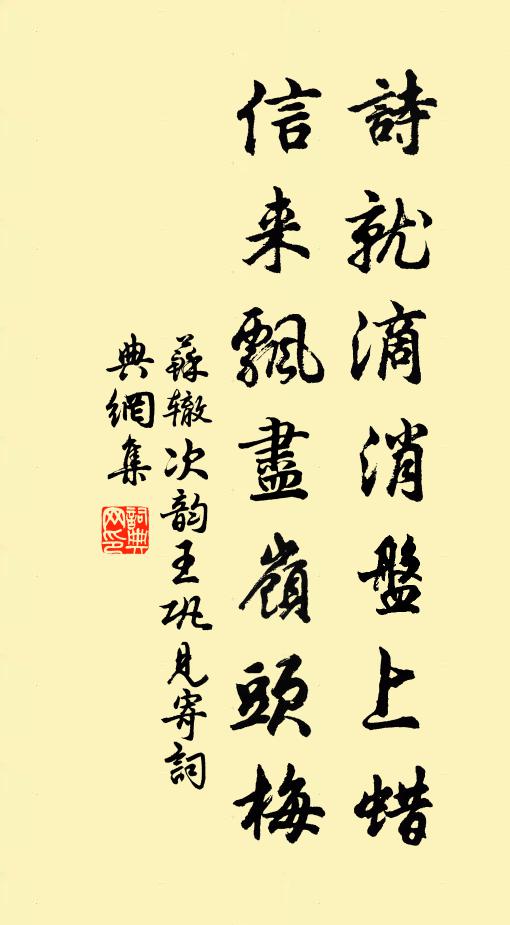 詩就滴消盤上蜡
信来飄盡嶺頭梅
蘇辙次韵王巩见寄詞
典網集
詞典网印